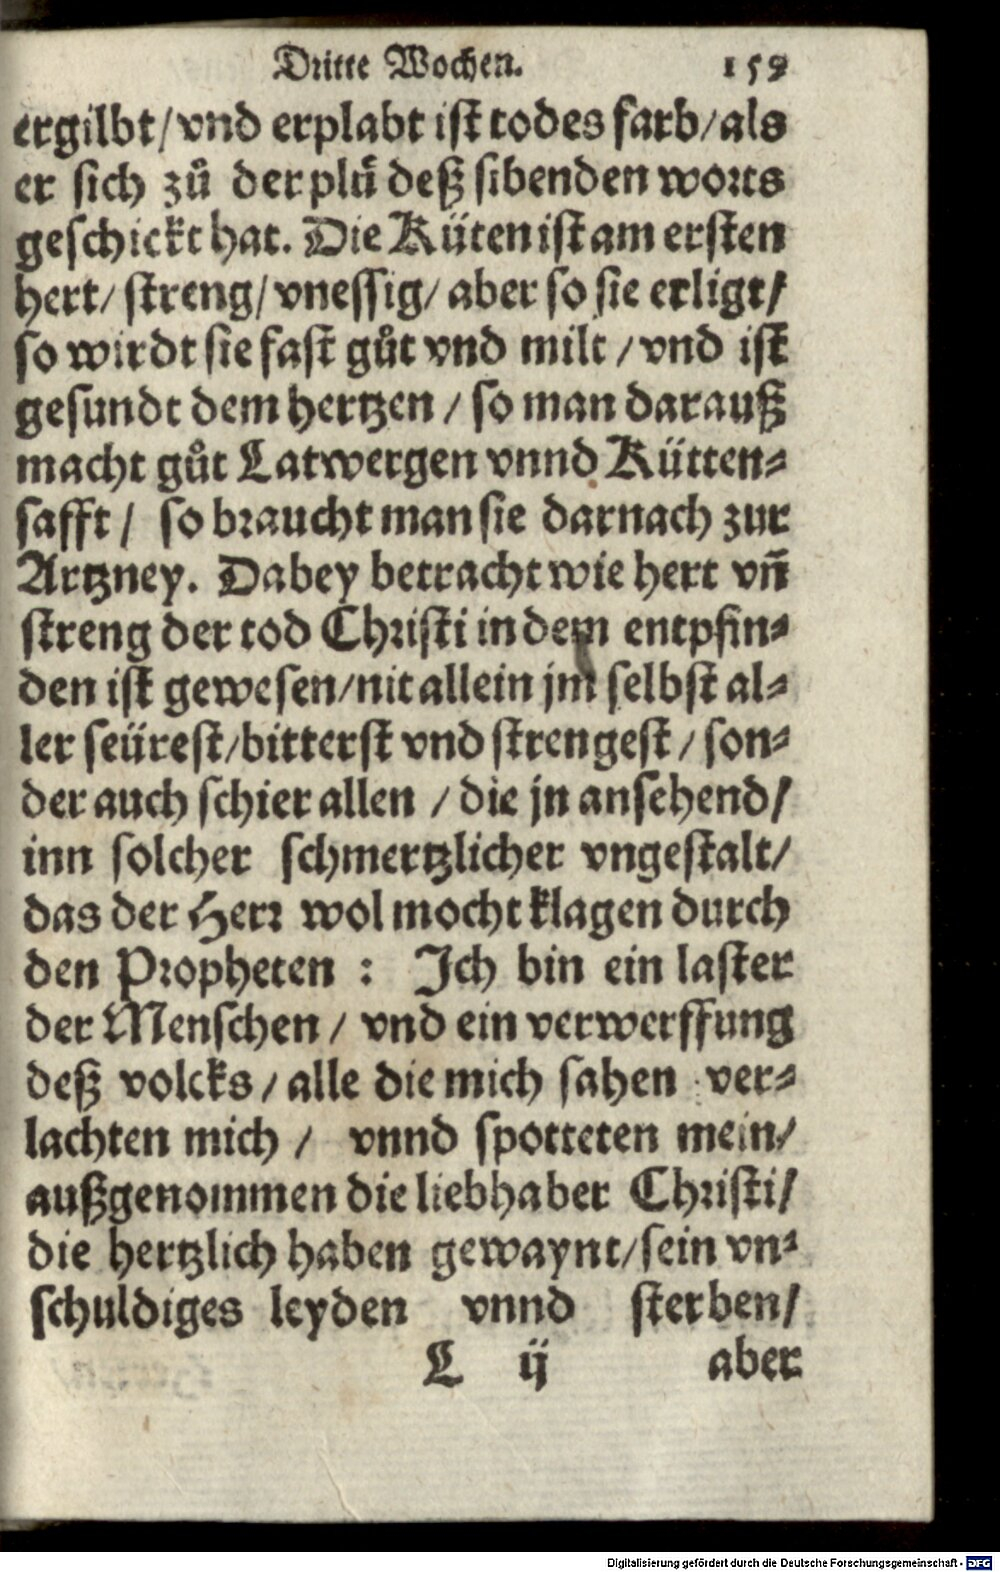 Dritte Wochen. 159
ergilbt/vnd erplabt ist todes farb/als
er sich zů der plů deß sibenden worts
geschickt hat. Die Küten ist am ersten
hert/streng/vnessig/aber so sie erligt/
so wirdt sie fast gůt vnd milt/vnd ist
gesundt dem hertzen/so man darauß
macht gůt Latwergen vnnd Kütten-
safft/ so braucht man sie darnach zur
Artzney. Dabey betracht wie hert vñ
streng der tod Christi in dem entpfin-
den ist gewesen/nit allein jm selbst al-
ler seürest/bitterst vnd strengest/son-
der auch schier allen/die jn ansehend/
inn solcher schmertzlicher vngestalt/
das der Herr wol mocht klagen durch
den Propheten : Ich bin ein laster
der Menschen/ vnd ein verwerffung
deß volcks/alle die mich sahen ver-
lachten mich/ vnnd spotteten mein/
außgenommen die liebhaber Christi/
die hertzlich haben gewaynt/sein vn-
schuldiges leyden vnnd sterben/
L ij aber
Digitalisierung gefördert durch die Deutsche Forschungsgemeinschaft - DFG